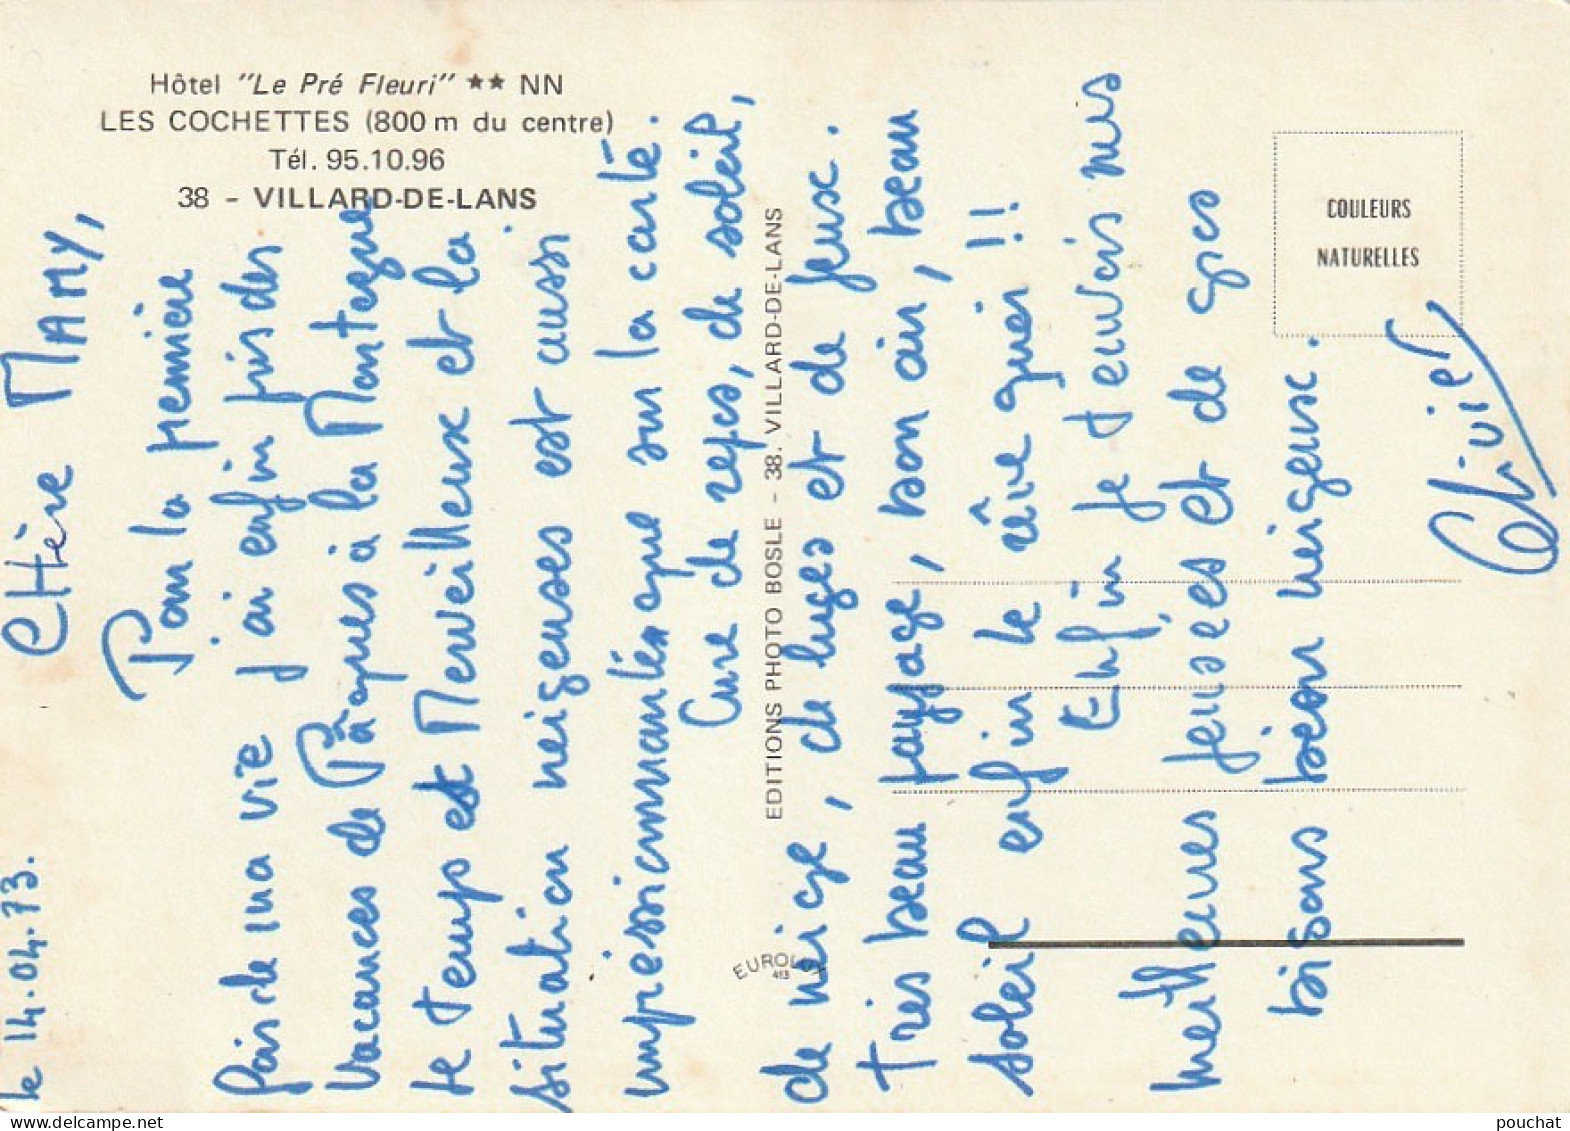 Hôtel "Le Pré Fleuri" ★★ NN
LES COCHETTES (800 m du centre)
Tél. 95.10.96
38 - VILLARD-DE-LANS
COULEURS
NATURELLES
EDITIONS PHOTO BOSLE - 38. VILLARD-DE-LANS
EUROLUX
413
le 14.04.73. CHère MAMY,
Pour la première
fois de ma vie j'ai enfin pris des
vacances de Pâques à la Montagne
le temps est Merveilleux et la
situation neigeuses est aussi
impressionnantes que sur la carte.
Cure de repos, de soleil,
de neige, de luges et de jeux.
Très beau paysage, bon air, beau
soleil enfin le rêve quoi !!
Enfin je t'envois mes
meilleures pensées et de gros
bisous bien neigeux.
Olivier
pouchat